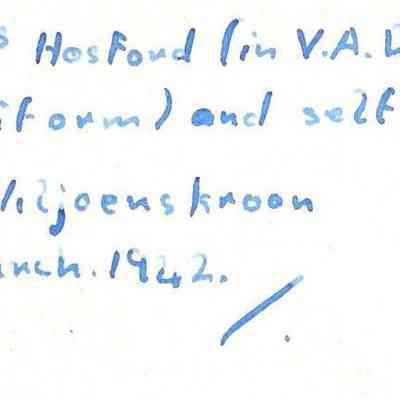 s Hosford (in V.A.D
iform) and self
iljoenskroon
arch. 1942.